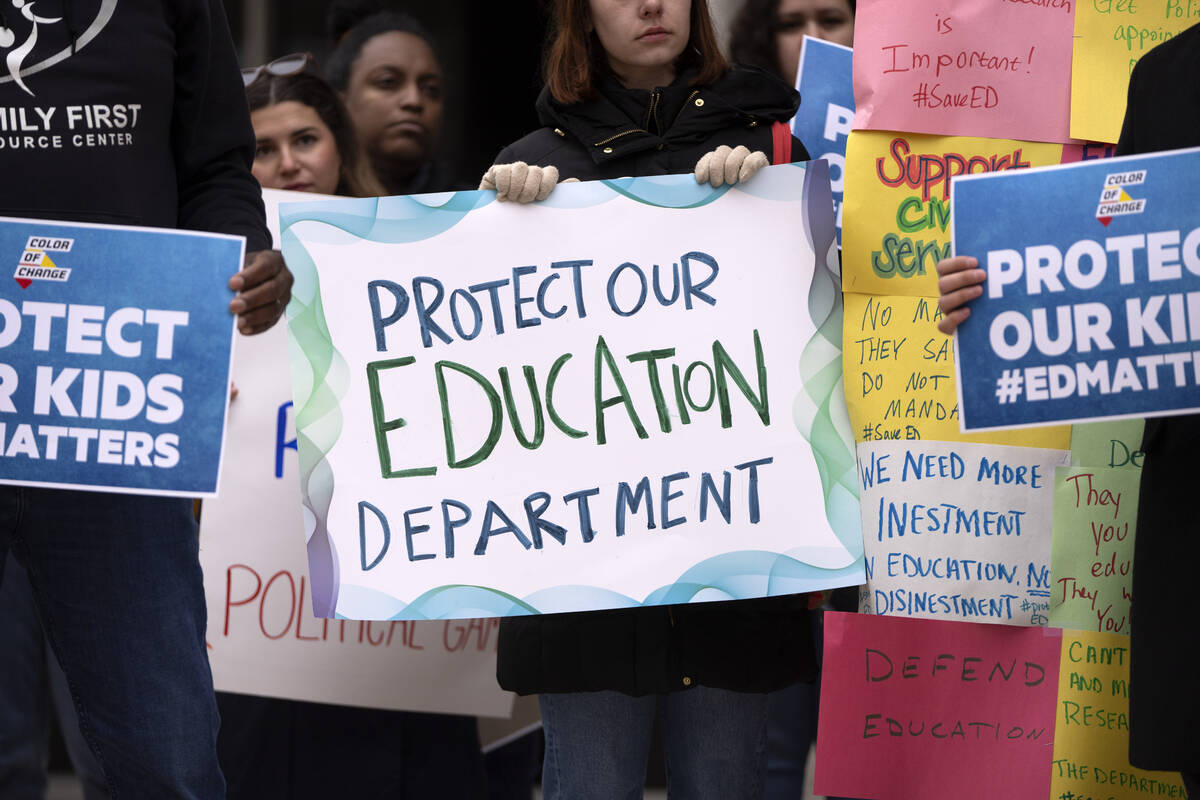 MILY FIRST
OURCE CENTER
COLOR
OF
CHANGE
OTECT
R KIDS
MATTERS
POLI
CAL GAM
PROTECT OUR
EDUCATION
DEPARTMENT
is
Important!
#SaveED
Get
appoin
Support
Civ
Serv
NO MA
THEY SA
DO NOT
MANDA
#Save ED
WE NEED MORE
INESTMENT
N EDUCATION. NO
DISINESTMENT
DEFEND
EDUCATION
COLOR
OF
CHANGE
PROTEC
OUR KI
#EDMATT
DE
They
you
edu
They w
You!
CANT
AND M
RESEA
THE DEPARTMEN